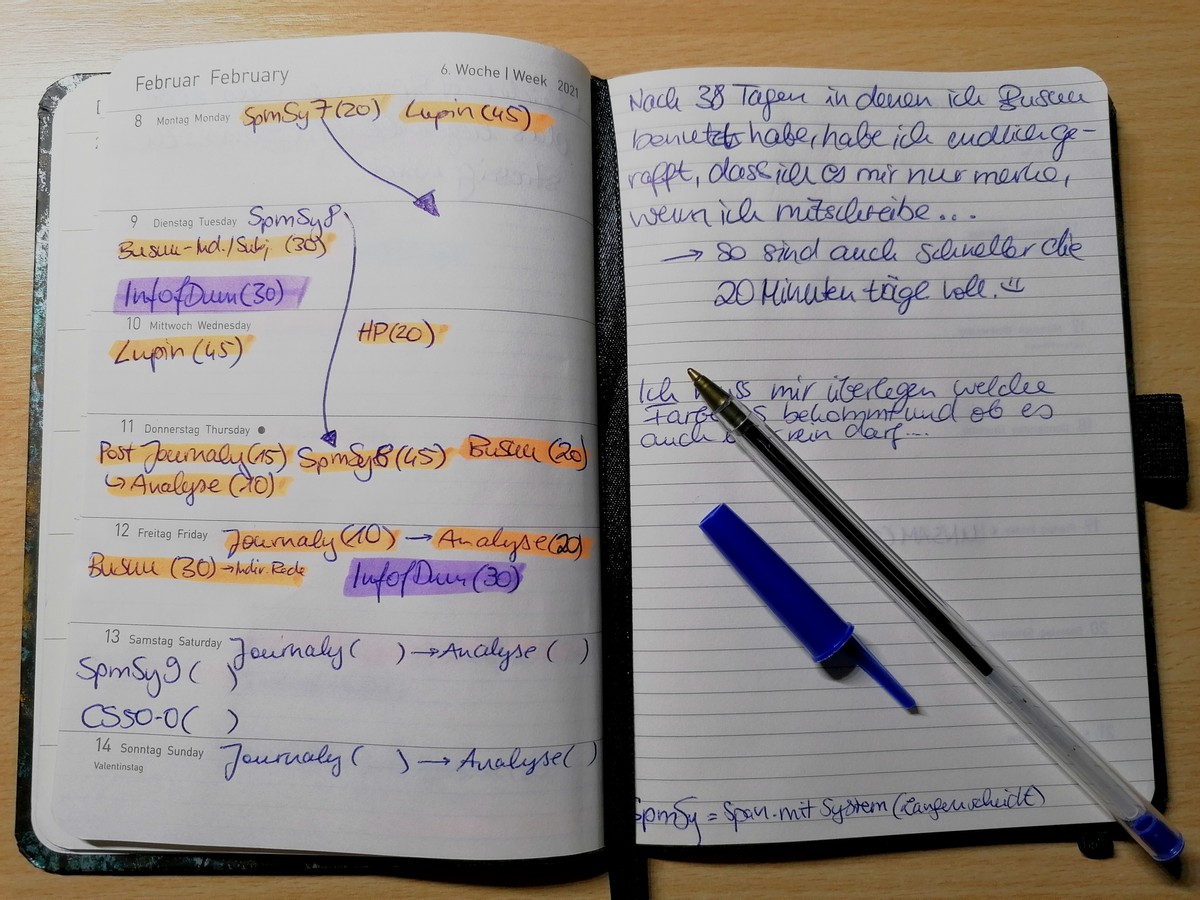 Februar February
6. Woche | Week 2021
8 Montag Monday SpmSy7(20) Lupin(45)
9 Dienstag Tuesday SpmSy8
Busuu-Ind./Subj (30)
InfofDum(30)
10 Mittwoch Wednesday
Lupin(45) HP(20)
11 Donnerstag Thursday
Post Journaly(15) SpmSy8(45) Busuu (20)
↳ Analyse (10)
12 Freitag Friday Journaly(10) → Analyse(20)
Busuu (30) → Indir. Rede InfofDum(30)
13 Samstag Saturday Journaly( ) → Analyse ( )
SpmSy9( )
CS50-0( )
14 Sonntag Sunday Journaly( ) → Analyse( )
Valentinstag
Nach 38 Tagen in denen ich Busuu
benutzt habe, habe ich endlich ge-
rafft, dass ich es mir nur merke,
wenn ich mitschreibe...
→ so sind auch schneller die
20 Minuten täge voll.
Ich mir überlegen welche
bekommt und ob es
auch rein darf...
SpmSy = Span. mit System (Langenscheidt)